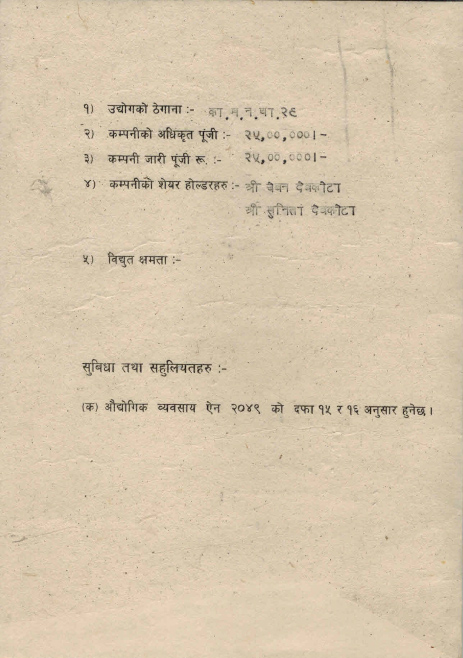 १) उद्योगको ठेगाना :- का.म.न.पा.२९
२) कम्पनीको अधिकृत पूंजी :- २५,००,०००।-
३) कम्पनी जारी पूंजी रू. :- २५,००,०००।-
४) कम्पनीको शेयर होल्डरहरु :- श्री देवकोटा
श्री सुनिता देवकोटा
५) विद्युत क्षमता :-
सुबिधा तथा सहुलियतहरु :-
(क) औद्योगिक व्यवसाय ऐन २०४९ को दफा १५ र १६ अनुसार हुनेछ ।